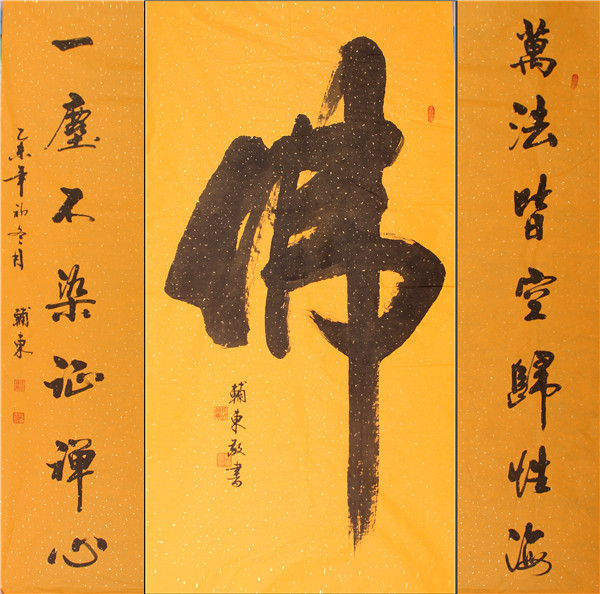 萬法皆空歸性海
佛
輔東敬書
一塵不染证禅心
乙未年初冬月 輔東